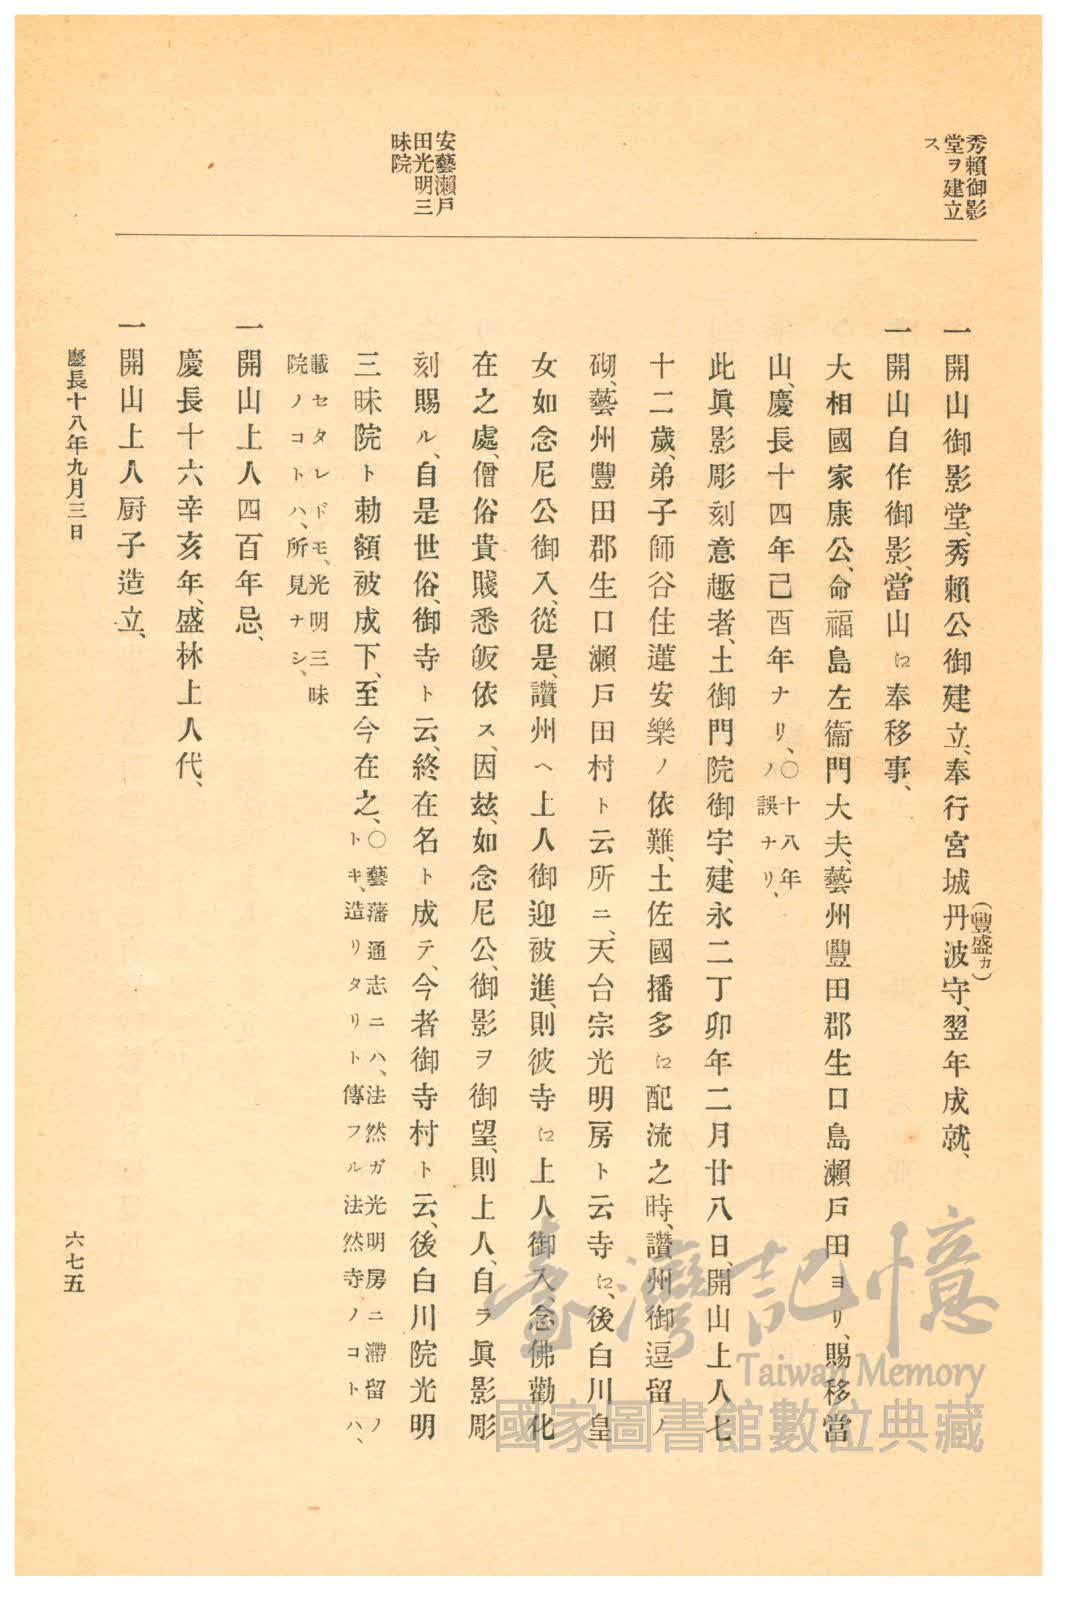 秀賴御影
堂ヲ建立
ス
安藝瀨戶
田光明三
昧院
一開山御影堂、秀賴公御建立、奉行宮城丹波守、翌年成就、
(豐盛カ)
一開山自作御影、當山ニ奉移事、
大相國家康公、命福島左衞門大夫、藝州豐田郡生口島瀨戶田ヨリ、賜移當
山、慶長十四年己酉年ナリ、〇十八年
ノ誤ナリ、
此眞影彫刻意趣者、土御門院御宇、建永二丁卯年二月廿八日、開山上人七
十二歲、弟子師谷住蓮安樂ノ依難、土佐國播多ニ配流之時、讚州御逗留ノ
砌、藝州豐田郡生口瀨戶田村ト云所ニ、天台宗光明房ト云寺ニ、後白川皇
女如念尼公御入、從是、讚州ヘ上人御迎被進、則彼寺ニ上人御入、念佛勸化
在之處、僧俗貴賤悉皈依ス、因玆、如念尼公、御影ヲ御望、則上人、自ラ眞影彫
刻賜ル、自是世俗、御寺ト云、終在名ト成テ、今者御寺村ト云、後白川院光明
三昧院ト勅額被成下、至今在之、〇藝藩通志ニハ、法然ガ光明房ニ滯留ノ
トキ、造リタリト傳フル法然寺ノコトハ、
載セタレドモ、光明三昧
院ノコトハ、所見ナシ、
一開山上人四百年忌、
慶長十六辛亥年、盛林上人代、
一開山上人厨子造立、
慶長十八年九月三日
六七五
臺灣記憶
Taiwan Memory
國家圖書館數位典藏